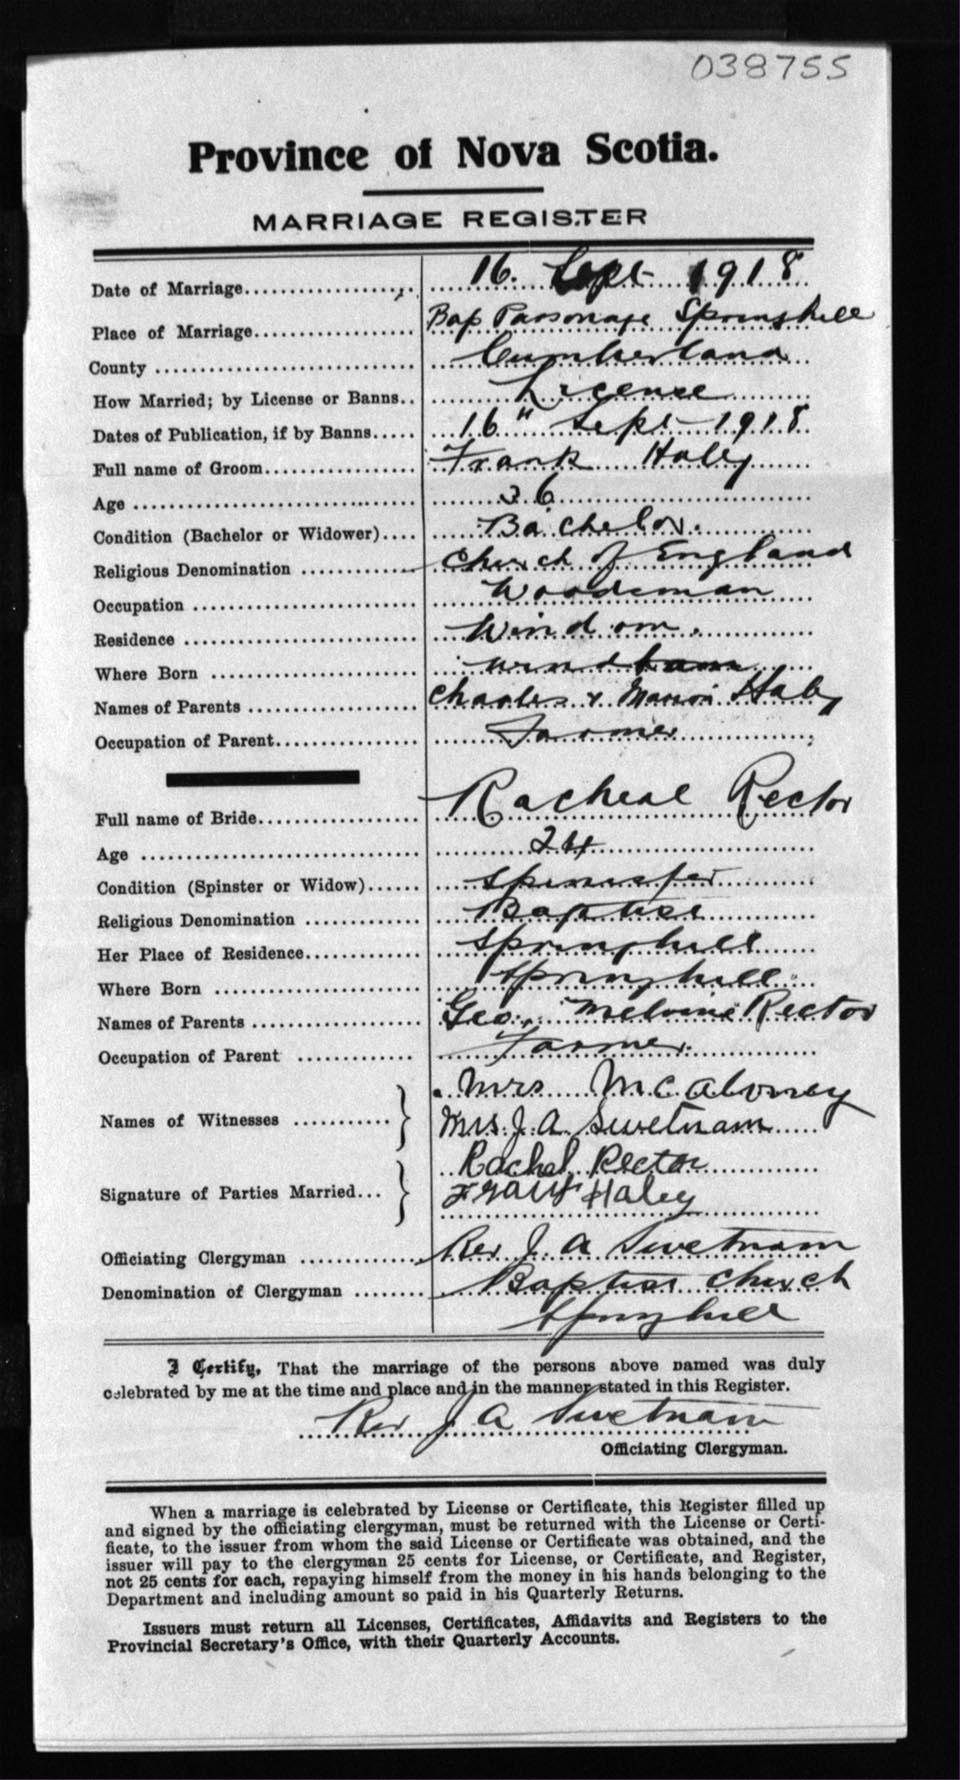 038755
Province of Nova Scotia.
MARRIAGE REGISTER
Date of Marriage 16. Sept 1918
Place of Marriage Bap Parsonage Springhill
County Cumberland
How Married; by License or Banns License
Dates of Publication, if by Banns 16" Sept 1918
Full name of Groom Frank Haley
Age 26
Condition (Bachelor or Widower) Bachelor.
Religious Denomination Church of England
Occupation Woodsman
Residence Windom.
Where Born Windham
Names of Parents Charles & Haley
Occupation of Parent Farmer
Full name of Bride Racheal Rector
Age 24
Condition (Spinster or Widow) Spinister
Religious Denomination Baptist
Her Place of Residence Springhill
Where Born Springhill
Names of Parents Geo. Melvine Rector
Occupation of Parent Farmer.
Names of Witnesses Mrs McAloney
Mrs. J. A. Swetnam
Signature of Parties Married Rachel Rector
Frank Haley
Officiating Clergyman Rev J. A Swetnam
Denomination of Clergyman Baptist Church
Springhill
I Certify, That the marriage of the persons above named was duly
celebrated by me at the time and place and in the manner stated in this Register.
Rev J A Swetnam
Officiating Clergyman.
When a marriage is celebrated by License or Certificate, this Register filled up
and signed by the officiating clergyman, must be returned with the License or Certi-
ficate, to the issuer from whom the said License or Certificate was obtained, and the
issuer will pay to the clergyman 25 cents for License, or Certificate, and Register,
not 25 cents for each, repaying himself from the money in his hands belonging to the
Department and including amount so paid in his Quarterly Returns.
Issuers must return all Licenses, Certificates, Affidavits and Registers to the
Provincial Secretary's Office, with their Quarterly Accounts.